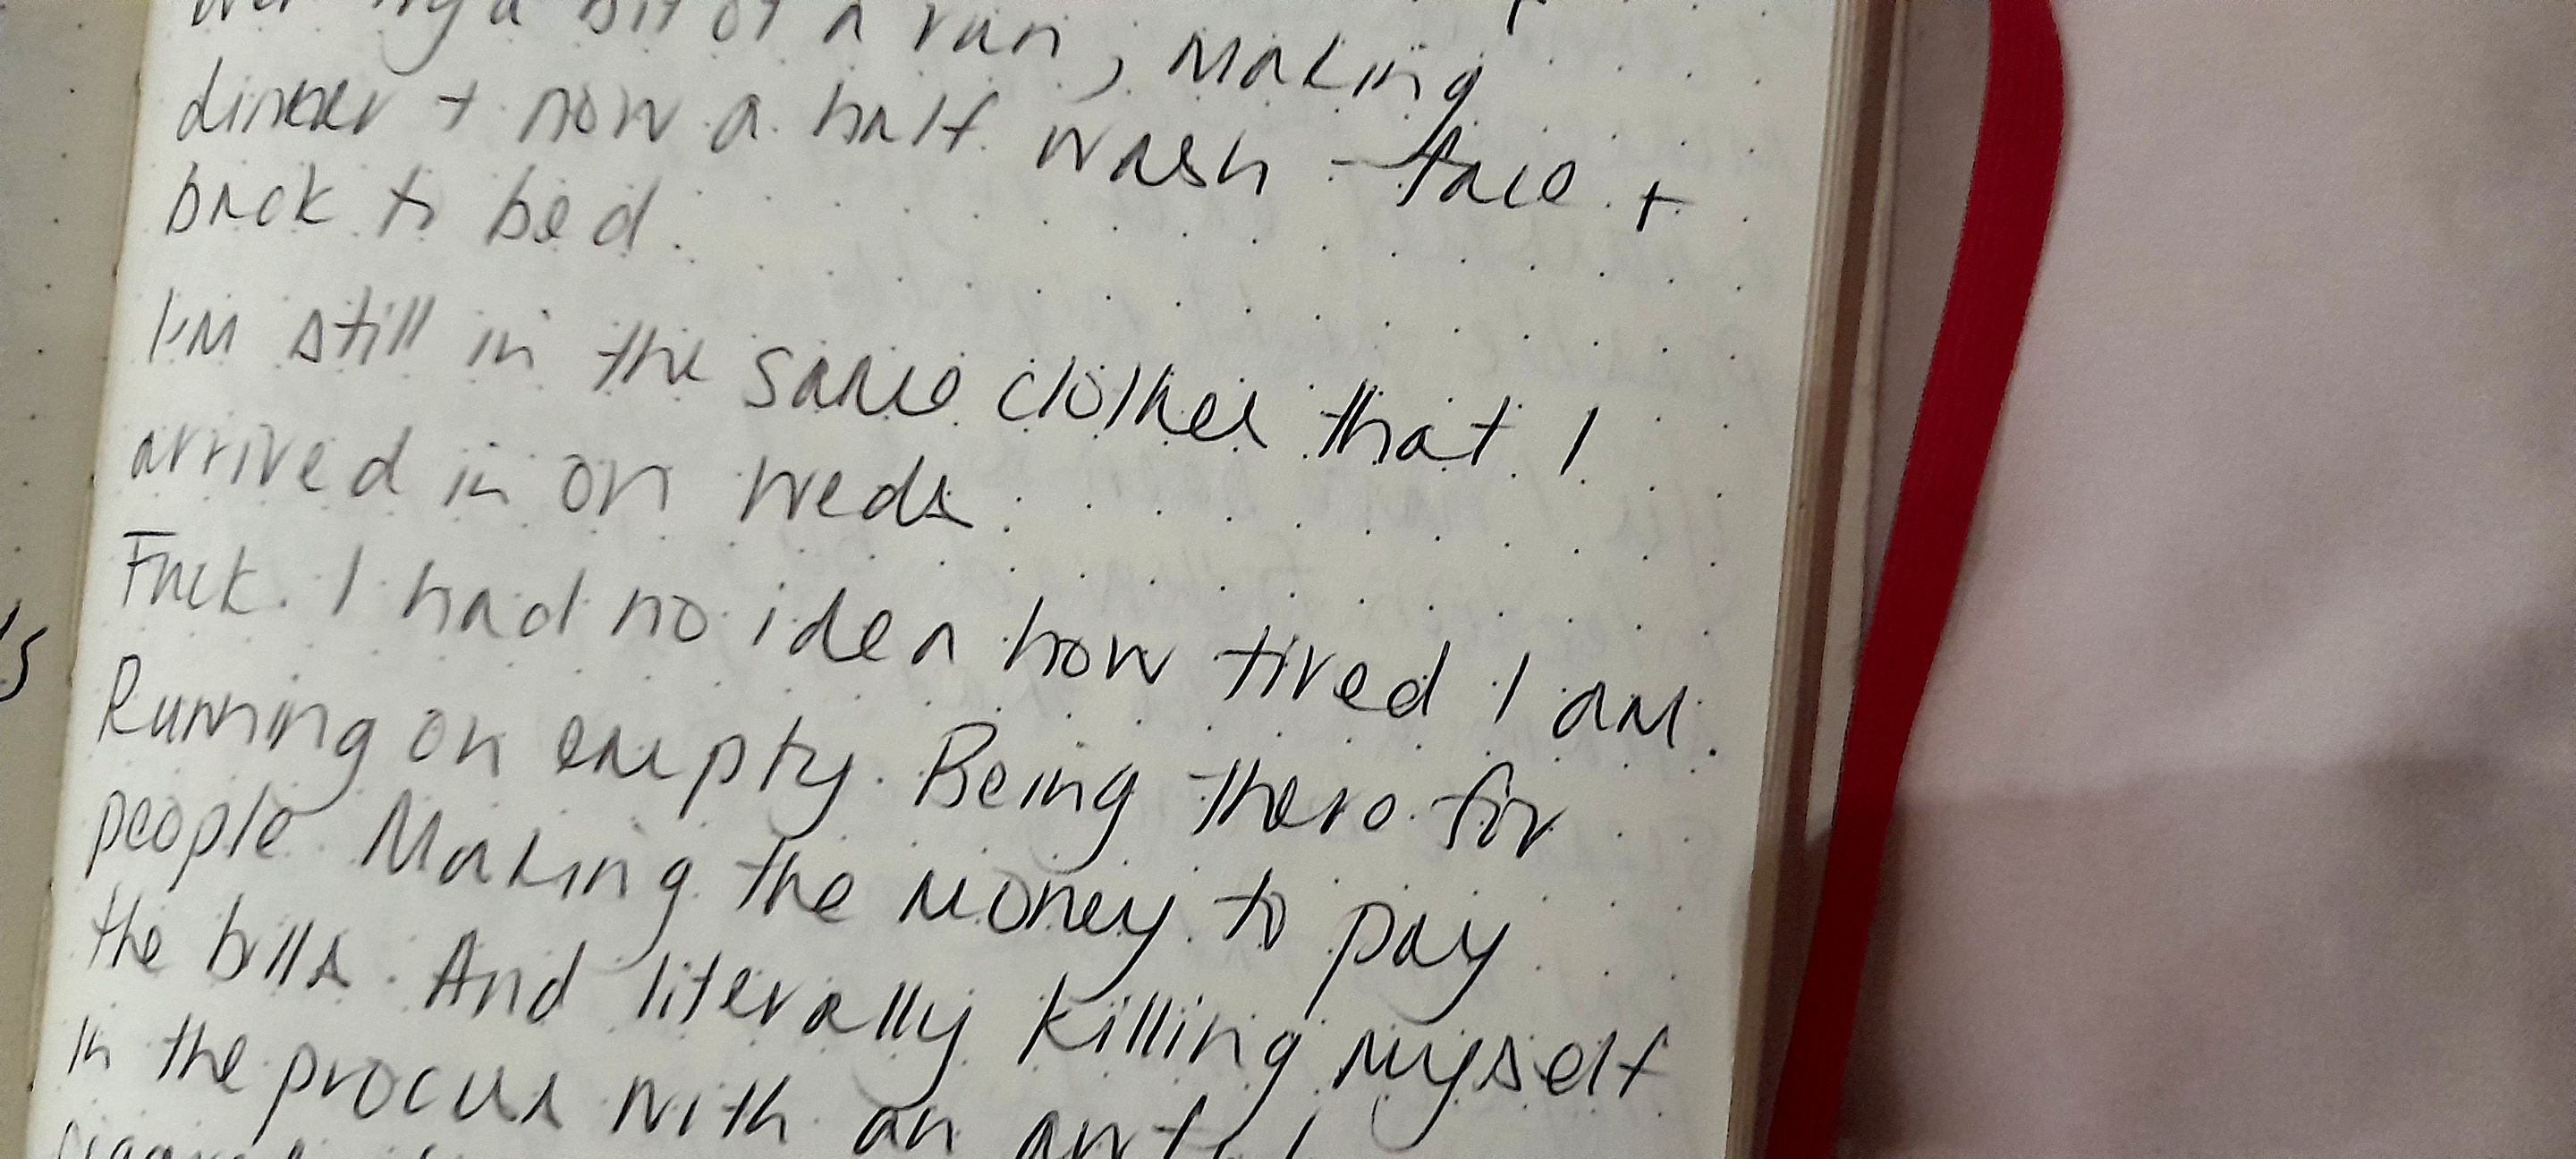 a bit of a run, making
dinner + now a half wash - face +
back to bed.
I'm still in the same clothes that I
arrived in on weds.
Fuck. I had no idea how tired I am.
Running on empty. Being there for
people. Making the money to pay
the bills. And literally killing myself
in the process with an